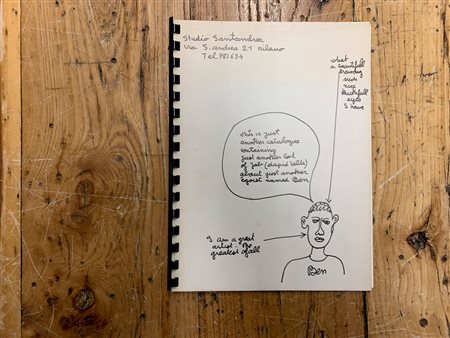 Studio Santandrea
Via S. andrea 21 Milano
Tel 781634
what
a beautifull
drawing
such
nice
thuthfull
eyes
I have
this is just
another catalogue
containing
just another lot
of job (stupid talk)
about just another
egoist named Ben
I am a great
artist. the
greatest of all
Ben